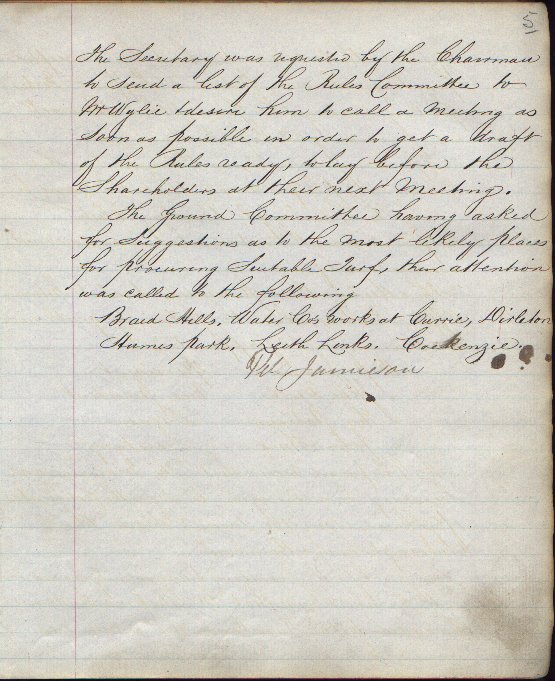 5
The Secretary was requested by the Chairman
to send a list of the Rules Committee to
Mr Wylie & desire him to call a Meeting as
soon as possible in order to get a draft
of the Rules ready, to lay before the
Shareholders at their next Meeting.
The Ground Committee having asked
for suggestions as to the most likely places
for procuring Suitable Turf, their attention
was called to the following
Braid Hills. Water Co's works at Currie, Dirleton
Humes park. Leith Links. Cockenzie.
Jamieson